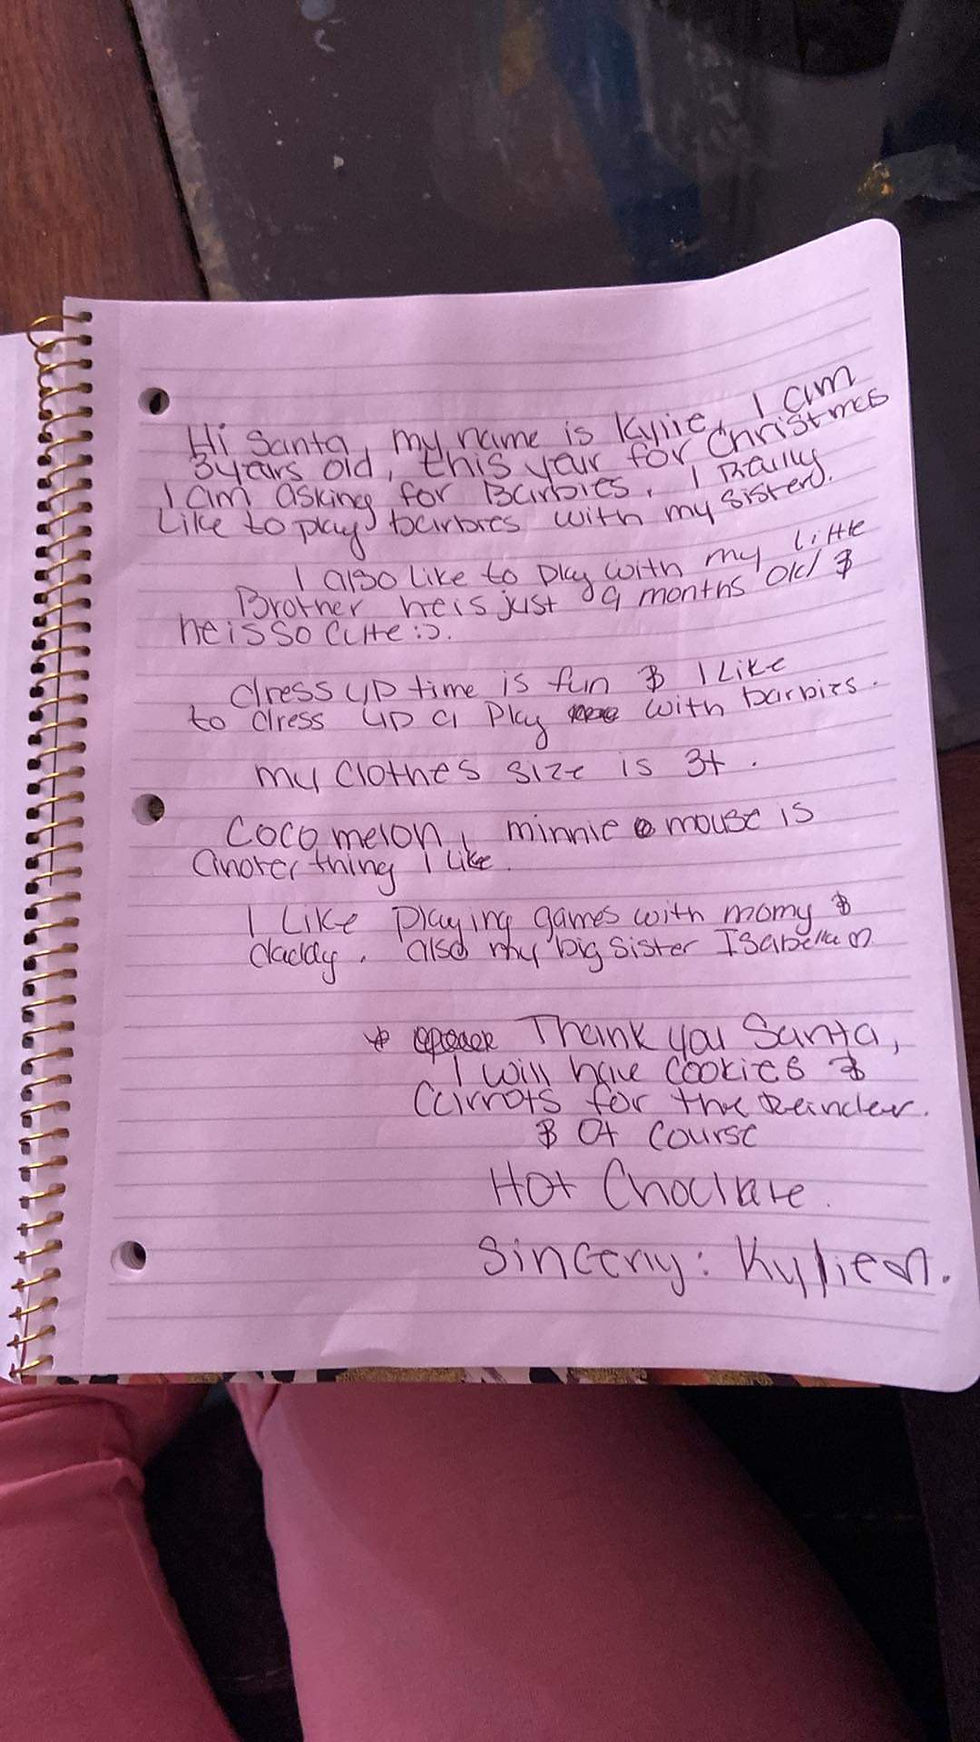 Hi Santa, my name is Kylie, I am
3years old, this year for Christmas
I am asking for Barbies, I Really
Like to play barbies with my sister.
I also like to play with my little
Brother he is just 9 months old &
he is so cute :).
dress up time is fun & I Like
to dress up a play with barbies.
my clothes size is 3t.
Coco melon, minnie mouse is
anoter thing I like.
I Like playing games with momy &
daddy. also my big sister Isabella ♡
* Thank you Santa,
I will have cookies &
Carrots for the Reindeer.
& Of course
Hot Choclate.
Sincerly: Kylie ♡.